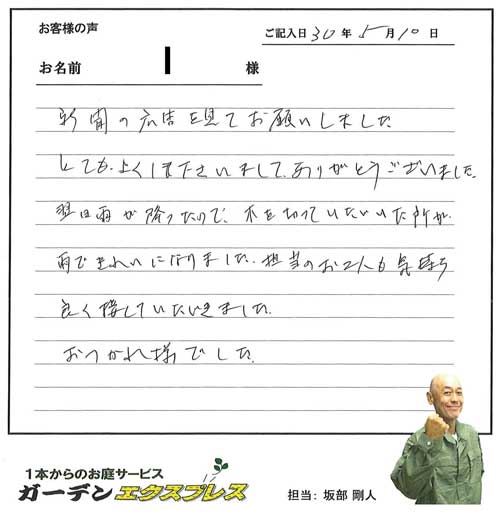 お客様の声
ご記入日 30年 5月 10日
お名前 様
新聞の広告を見てお願いしました
とてもよくしてくださいまして、ありがとうございました。
翌日雨が降ったので、木を切っていただいた所が
雨できれいになりました。担当のお2人も気持ち
良く接していただきました。
おつかれ様でした。
1本からのお庭サービス
ガーデンエクスプレス
担当: 坂部 剛人